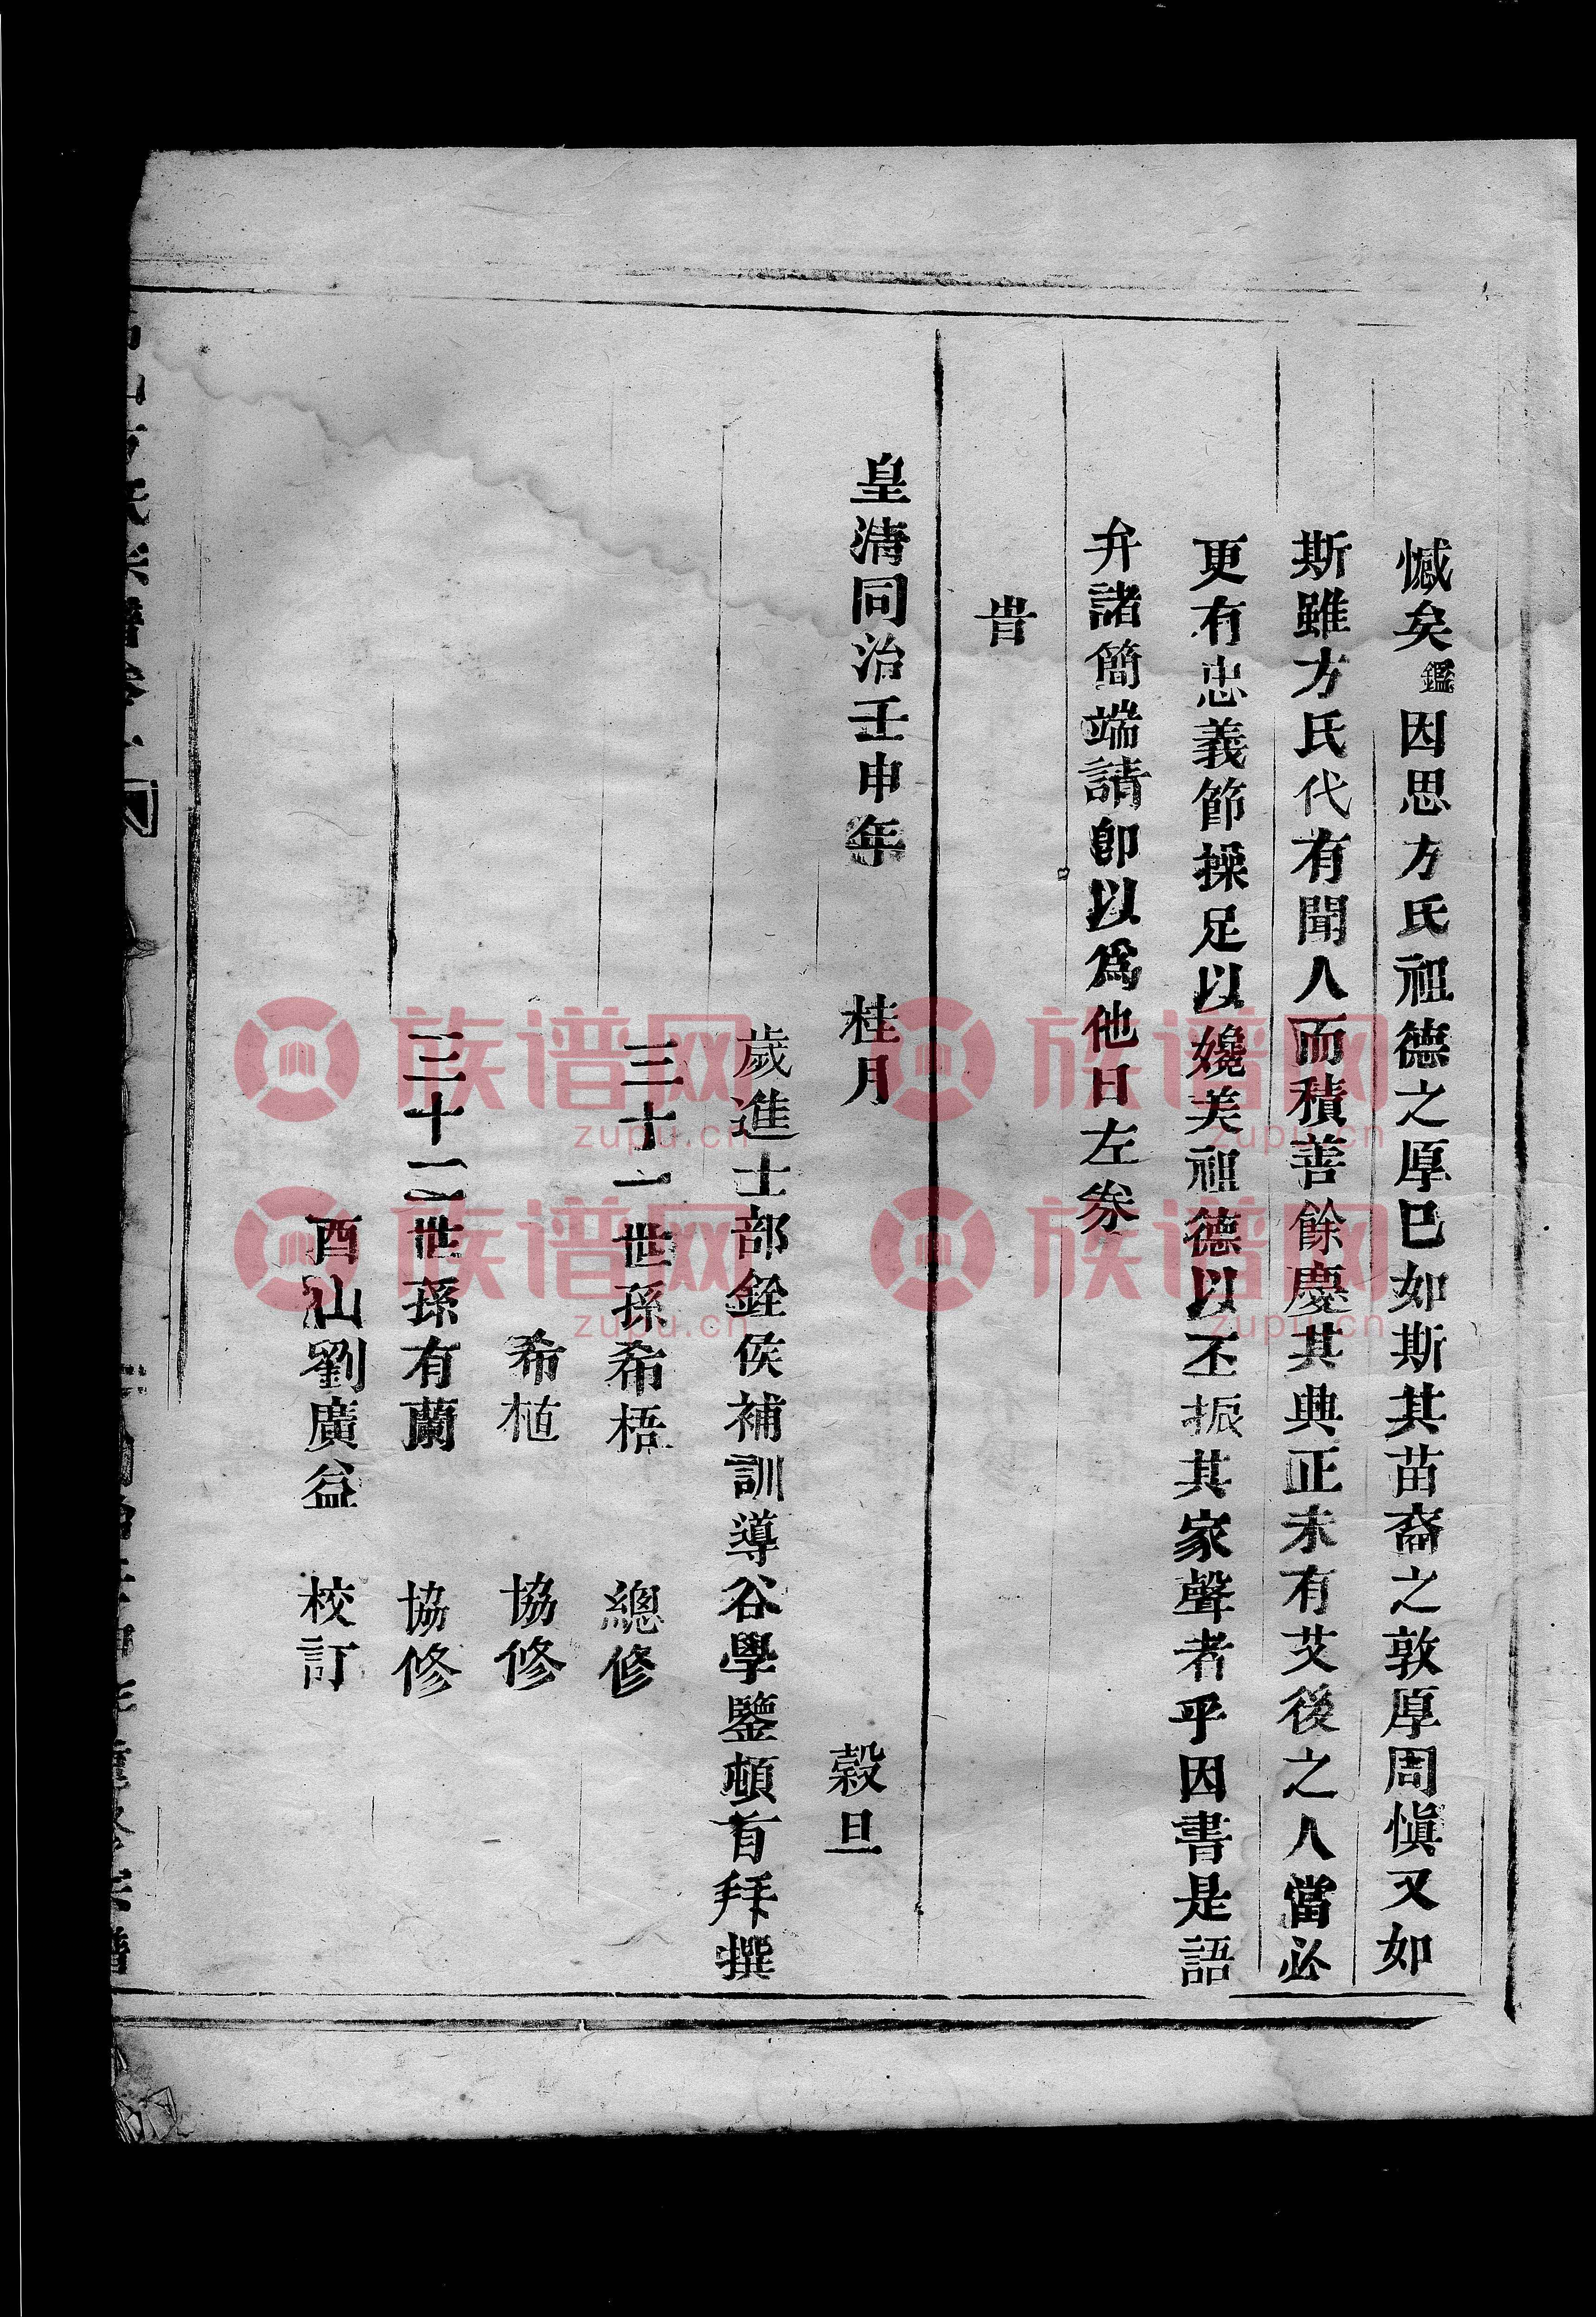 憾矣鑑因思方氏祖德之厚巳如斯其苗裔之敦厚周愼又如
斯雖方氏代有聞人而積善餘慶其典正未有艾後之人當必
更有忠義節操足以媲美祖德以丕振其家聲者乎因書是語
弁諸簡端請卽以爲他日左券
旹
皇清同治壬申年 桂月 穀旦
歲進士部銓侯補訓導谷學鑒頓首拜撰
三十一世孫希梧 總修
希植 協修
三十二世孫有蘭 協修
酉山劉廣益 校訂
族谱网
zupu.cn
族谱网
zupu.cn
族谱网
zupu.cn
族谱网
zupu.cn